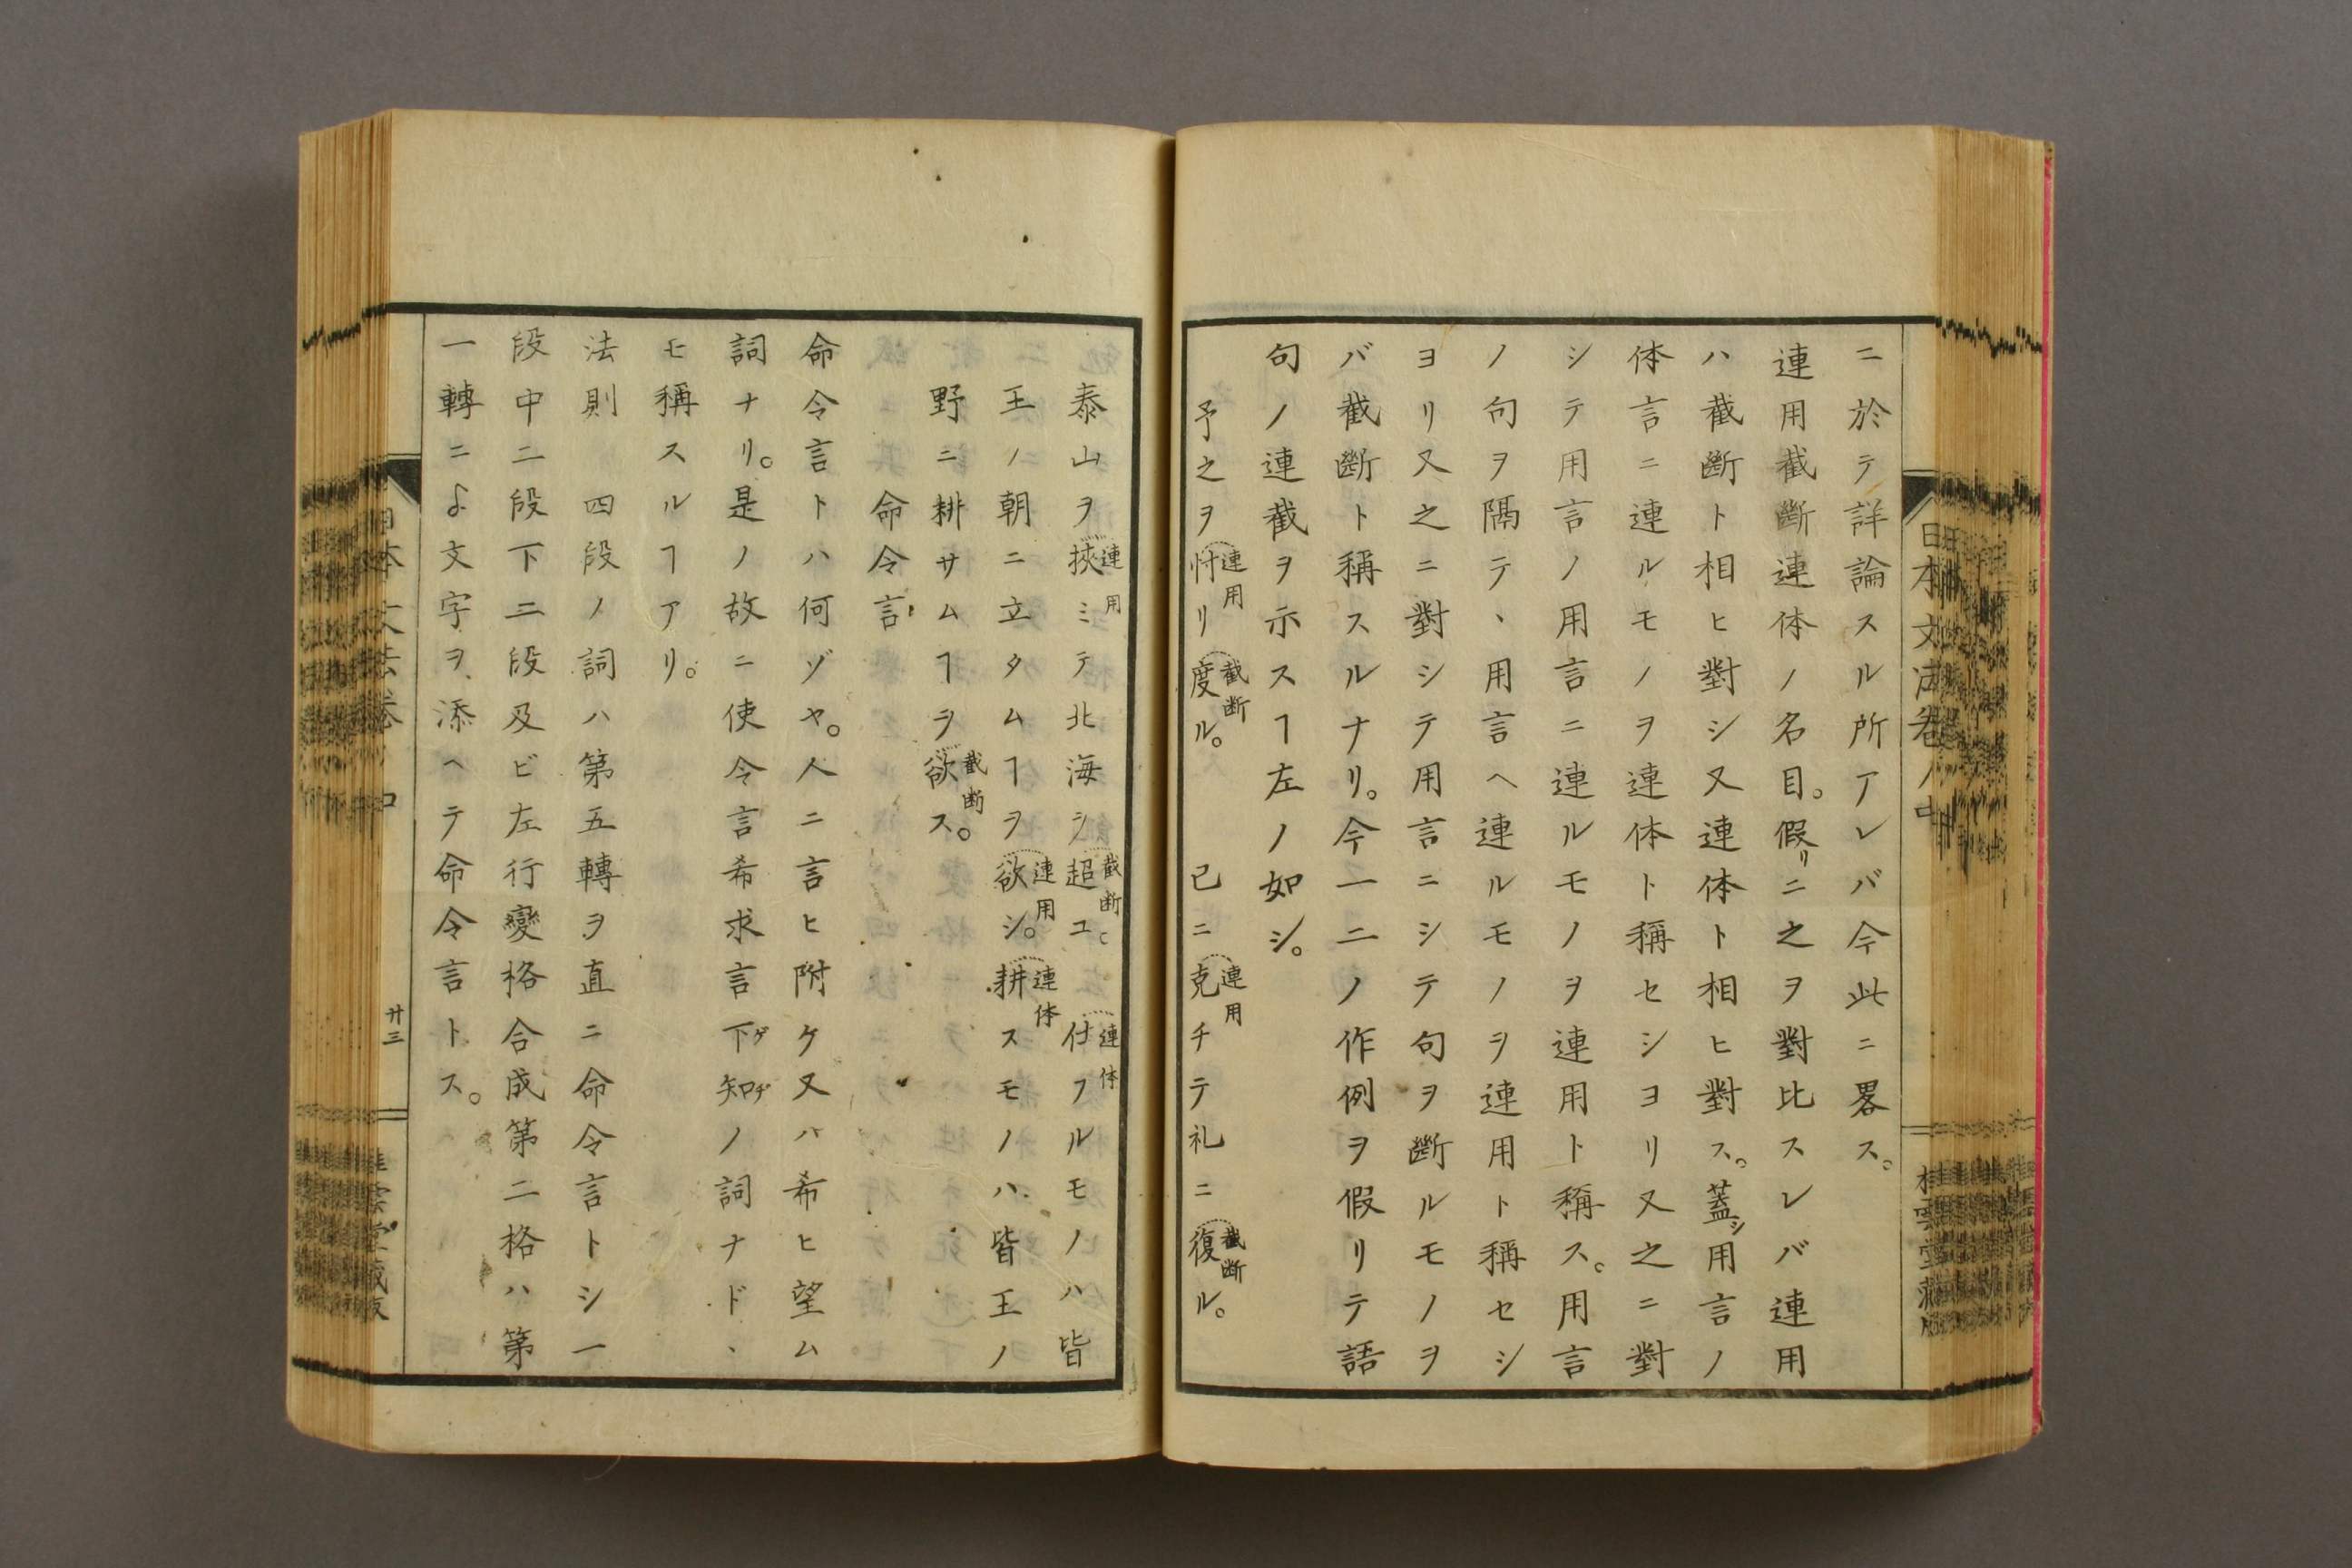 ニ於テ詳論スル所アレバ今此ニ畧ス。
連用截斷連体ノ名目。假リニ之ヲ對比スレバ連用
ハ截斷ト相ヒ對シ又連体ト相ヒ對ス。蓋シ用言ノ
体言ニ連ルモノヲ連体ト稱セシヨリ又之ニ對
シテ用言ノ用言ニ連ルモノヲ連用ト稱ス。用言
ノ句ヲ隔テ、用言ヘ連ルモノヲ連用ト稱セシ
ヨリ又之ニ對シテ用言ニシテ句ヲ斷ルモノヲ
バ截斷ト稱スルナリ。今一二ノ作例ヲ假リテ語
句ノ連截ヲ示スヿ左ノ如シ。
予之ヲ忖リ度ル。 已ニ克チテ礼ニ復ル。
連用 截断 連用 截断
日本文法卷ノ中
桂雲堂蔵版
泰山ヲ挾ミテ北海シ超ユ。 仕フルモノハ皆
連用 截断 連体
王ノ朝ニ立タムヿヲ欲シ。耕スモノハ皆王ノ
連用 連体
野ニ耕サムヿヲ欲ス。
截断
命令言
命令言トハ何ゾヤ。人ニ言ヒ附ケ又ハ希ヒ望ム
詞ナリ。是ノ故ニ使令言希求言下知ノ詞ナド、
ゲヂ
モ稱スルヿアリ。
法則 四段ノ詞ハ第五轉ヲ直ニ命令言トシ一
段中二段下二段及ビ左行變格合成第二格ハ第
一轉ニよ文字ヲ添ヘテ命令言トス。
日本文法卷ノ中
廿三
桂雲堂蔵版